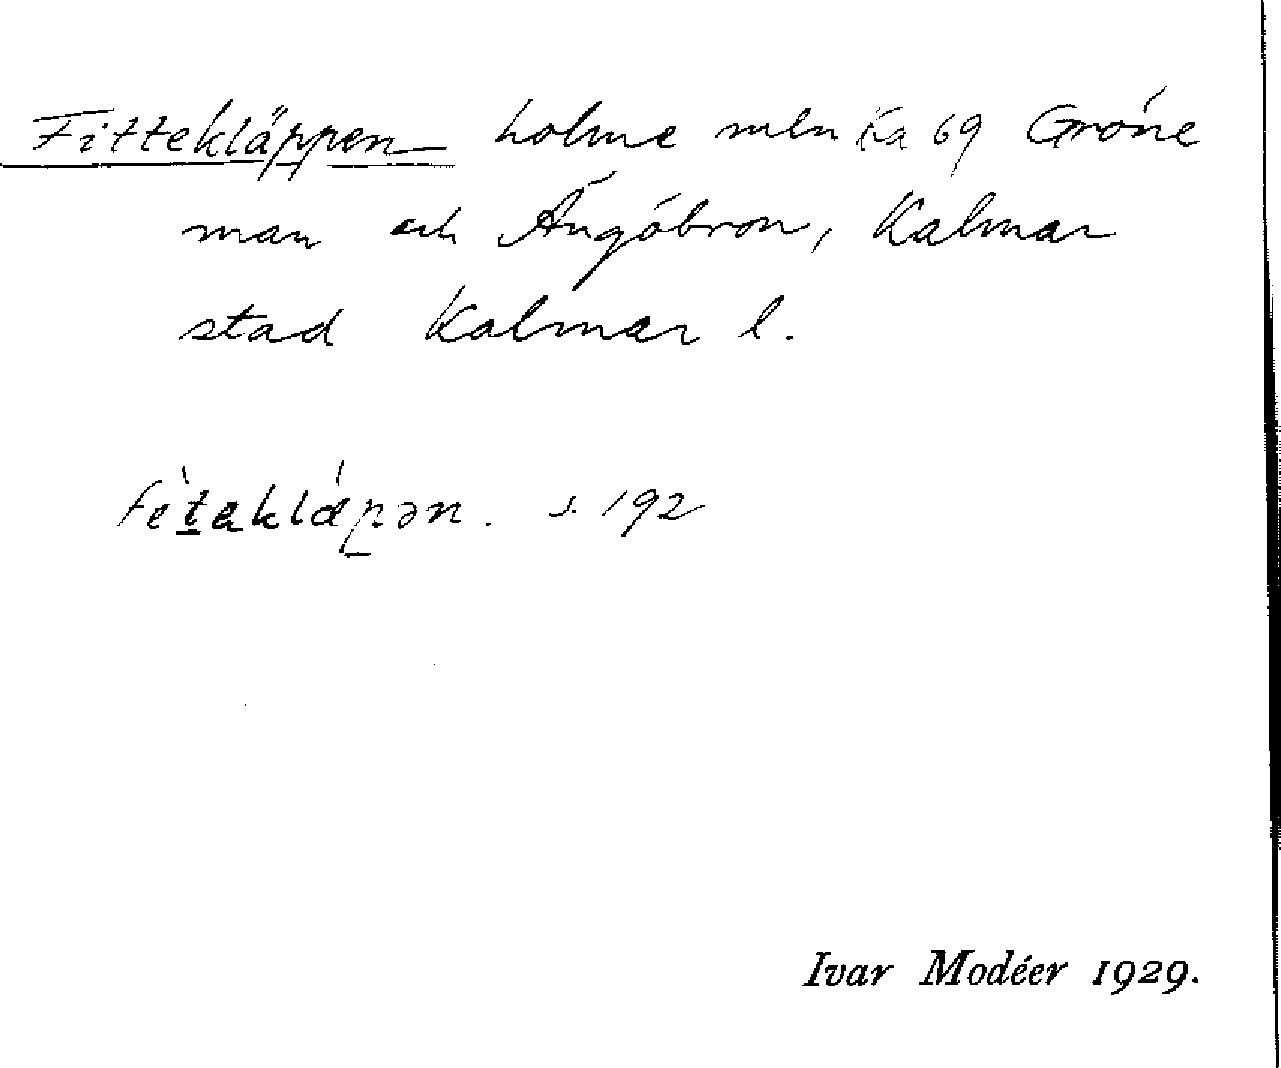 Fittekläppen holme mln Ka 69 Gröne
man och Ängöbron, Kalmar
stad Kalmar l.
fètaklǽpən. s. 192
Ivar Modéer 1929.